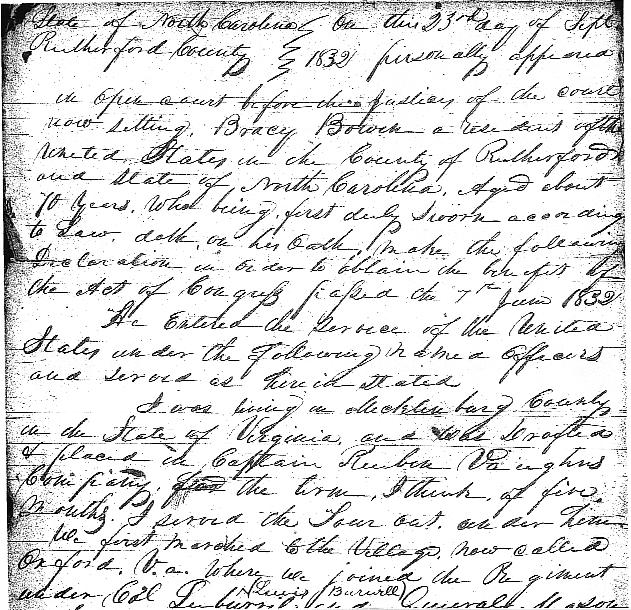 State of North Carolina } On this 23rd day of Sept
Rutherford County } 1832 personally appeared
in open court before the Justices of the court
now sitting, Bracy Bowen a resident of the
United States in the County of Rutherford
and State of North Carolina. Aged about
70 Years. Who being first duly sworn according
to Law. doth, on his Oath, make the following
Declaration in order to obtain the benefit of
the Act of Congress passed the 7th June 1832
He Entered the service of the United
States under the following named officers
and served as herein stated
I was living in Mecklenburg County
in the State of Virginia and was Drafted
& placed in Captain Reuben Vaughns
Company, the term, I think, of five
Months. I served the Tour out. under him
We first marched to the Village, now called
Oxford, Va. Where we joined the Regiment
under, Col Lewis Burwell and